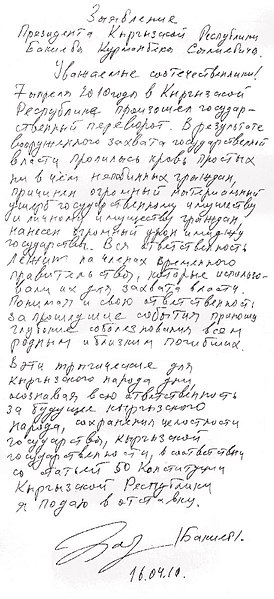 Заявление
Президента Кыргызской Республики
Бакиева Курманбека Салиевича.
Уважаемые соотечественники!
7 апреля 2010 года в Кыргызской
Республике произошел государ-
ственный переворот. В результате
вооруженного захвата государственной
власти пролилась кровь простых
ни в чём неповинных граждан,
причинен огромный материальный
ущерб государственному имуществу
и личному имуществу граждан,
нанесен огромный урон имиджу
государства. Вся ответственность
лежит на членах временного
правительства, которые использо-
вали их для захвата власти.
Понимая и свою ответственность
за прошедшие события приношу
глубокие соболезнования всем
родным и близким погибших.
В эти трагические для
кыргызского народа дни
осознавая всю ответственность
за будущее кыргызского
народа, сохранения целостности
государства, кыргызской
государственности, в соответствии
со статьей 50 Конституции
Кыргызской Республики
я подаю в отставку.
/Бакиев/.
16.04.10.